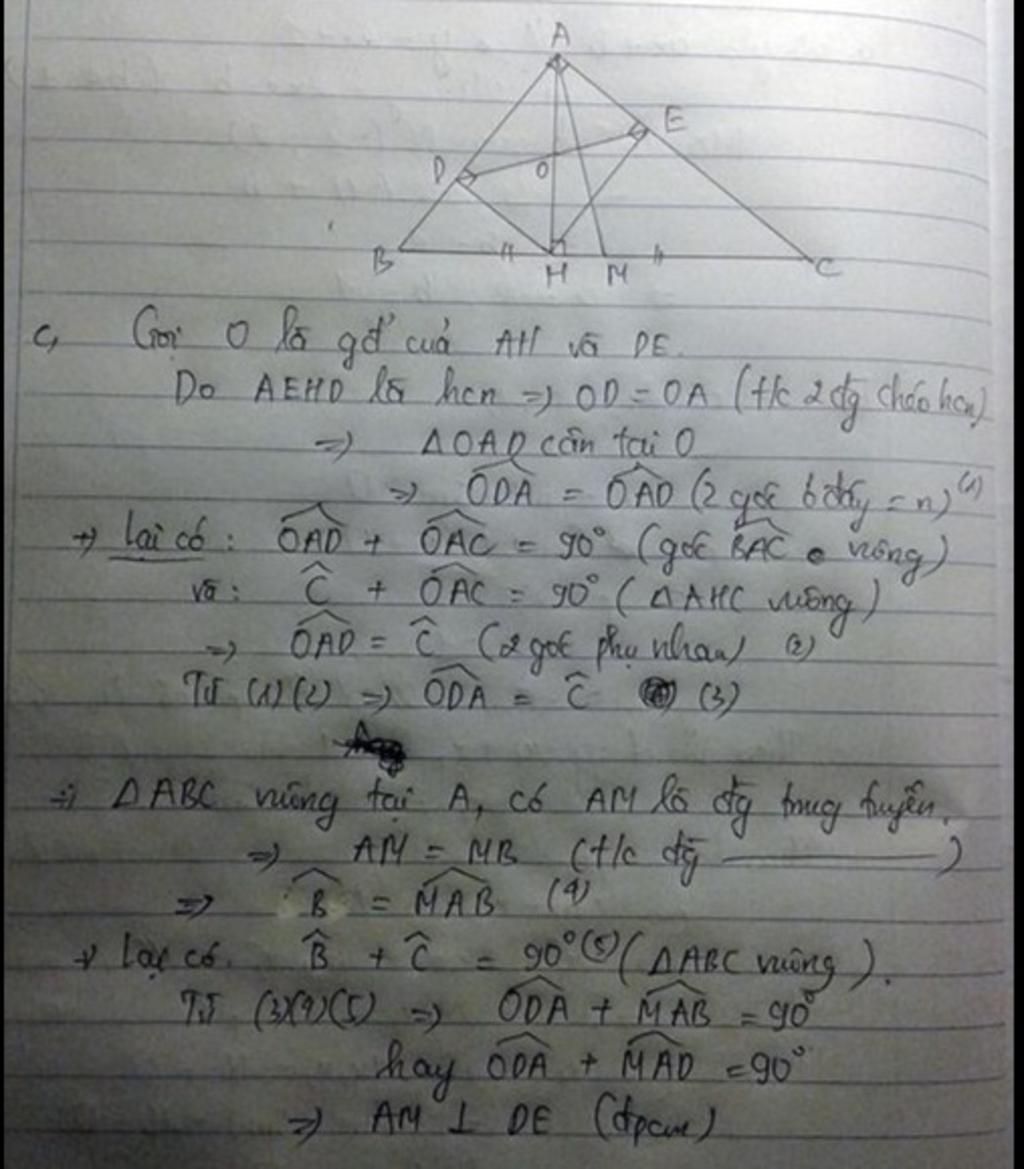 A
E
D
O
B
H
M
C
c, Gọi O là gđ' của AH và DE.
Do AEHD là hcn => OD = OA (t/c 2 đg chéo hcn)
=> ΔOAD cân tại O
=> ODA = OAD (2 góc ở đáy = n) (1)
+) Lại có: OAD + OAC = 90° (góc BAC vuông)
và: C + OAC = 90° (ΔAHC vuông)
=> OAD = C (2 góc phụ nhau) (2)
Từ (1)(2) => ODA = C (3)
+) ΔABC vuông tại A, có AM là đg trung tuyến.
=> AM = MB (t/c đg ———)
=> B = MAB (4)
+) Lại có. B + C = 90° (5) (ΔABC vuông).
Từ (3)(4)(5) => ODA + MAB = 90°
hay ODA + MAD = 90°
=> AM ⊥ DE (đpcm)